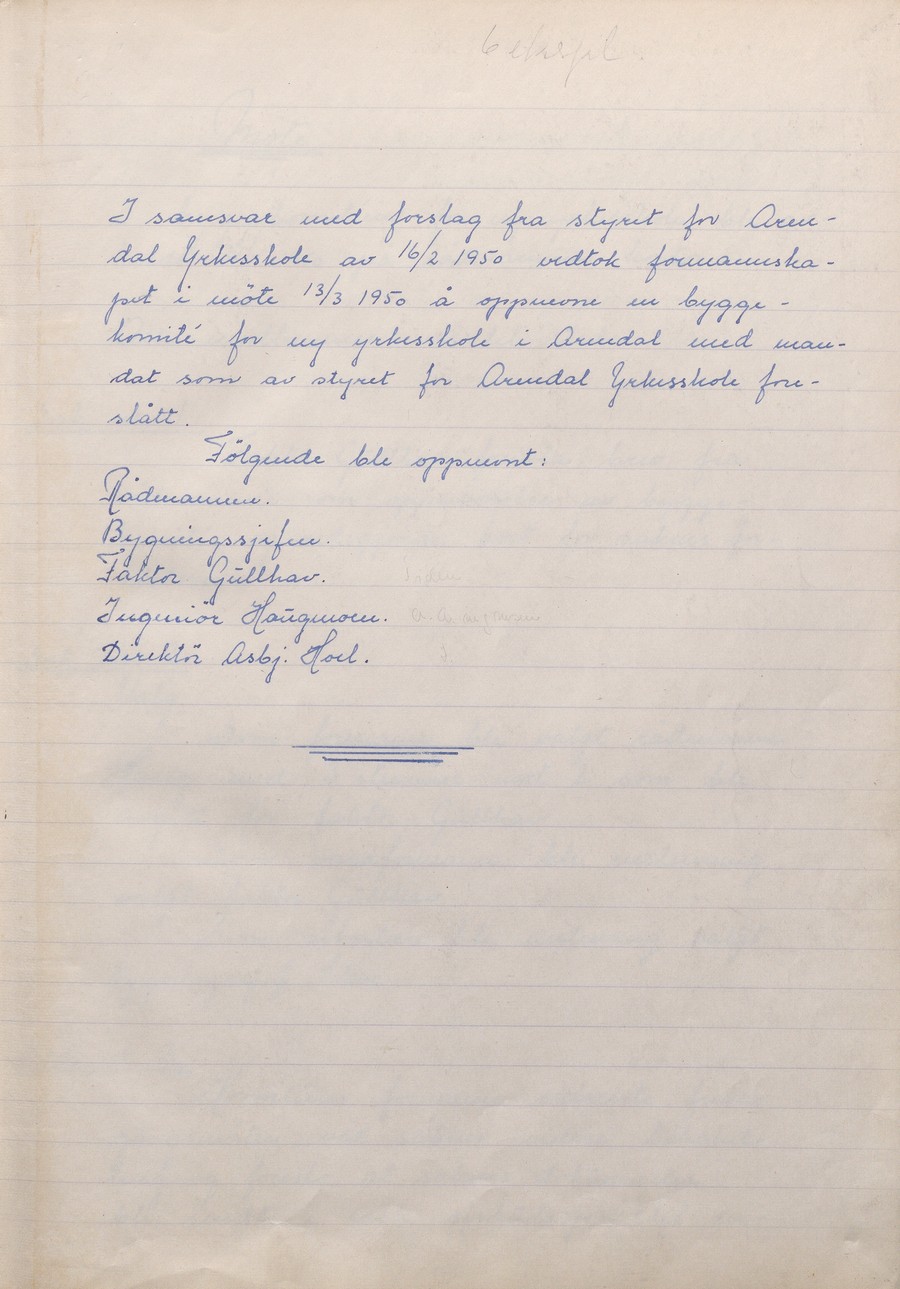 6 ekspl.
I samsvar med forslag fra styret for Aren-
dal Yrkesskole av 16/2 1950 vedtok formannska-
pet i möte 13/3 1950 å oppnevne en bygge-
komité for ny yrkesskole i Arendal med man-
dat som av styret for Arendal Yrkesskole fore-
slått.
Fölgende ble oppnevnt:
Rådmannen.
Bygningssjefen.
Faktor Gullhav.
Ingeniör Haugmoen.
Direktör Asbj. Hoel.